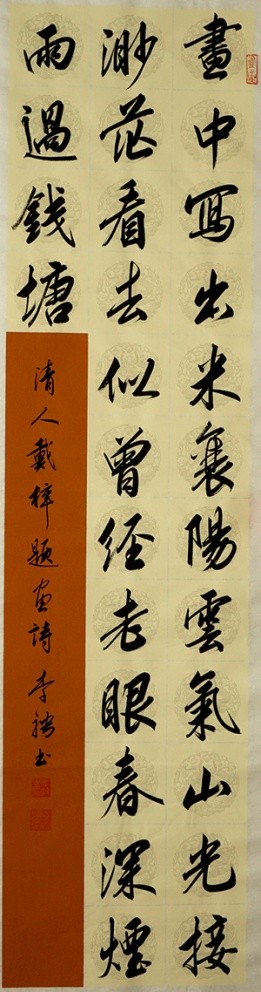 畫中寫出米襄陽雲氣山光接
渺茫看去似曾經老眼春深煙
雨過錢塘
清人戴梓題畫詩 李
書